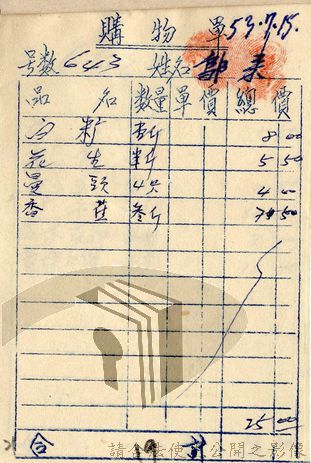 購物單 53.7.15.
号数 643 姓名 郭来
品名 数量 單價 總價
白籽 壹斤 8 00
花生 半斤 5 50
曼頭 4只 4 00
香蕉 叁斤 7 50
25 00
合計
請合法使用公開之影像